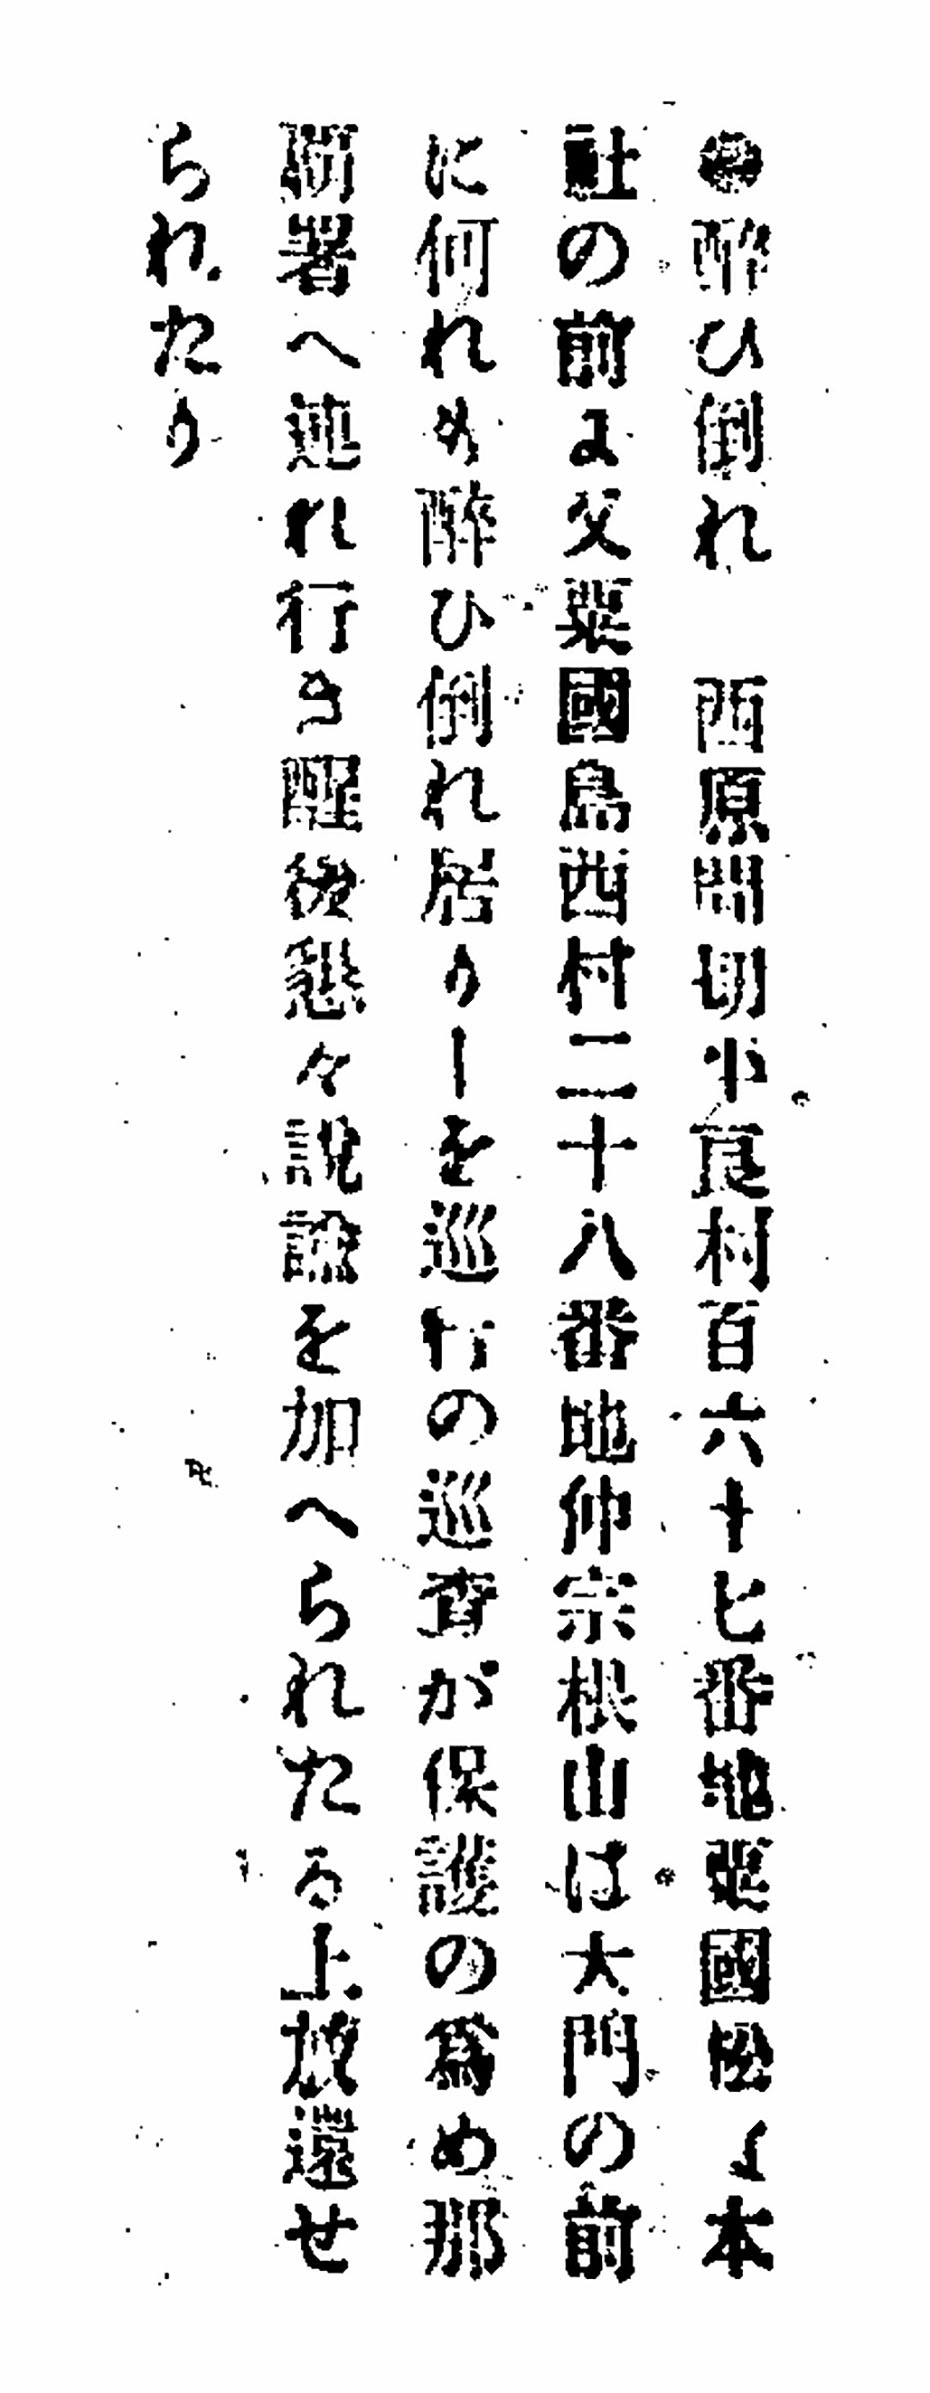 ●酔ひ倒れ　西原間切平良村百六十七番地粟國松は本
社の前に又粟國島西村二十八番地仲宗根山は大門の前
に何れも酔ひ倒れ居りしを巡行の巡査が保護の爲め那
覇署へ連れ行き醒後懇々説諭を加へられたる上放還せ
られたり